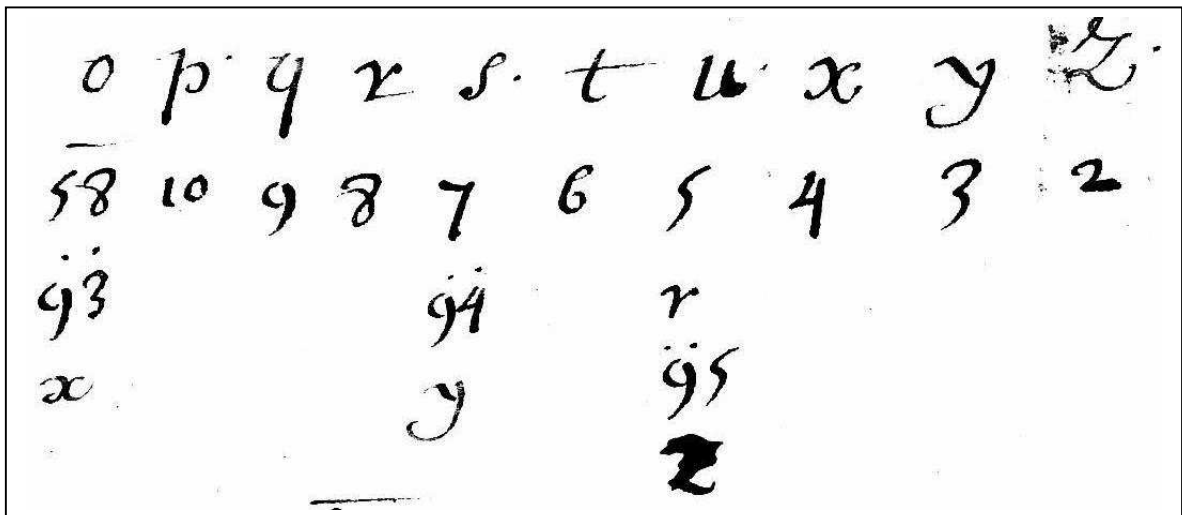 o p. q r s. t u. x y Z.
58 10 9 8 7 6 5 4 3 2
93 94 r
x y 95
z